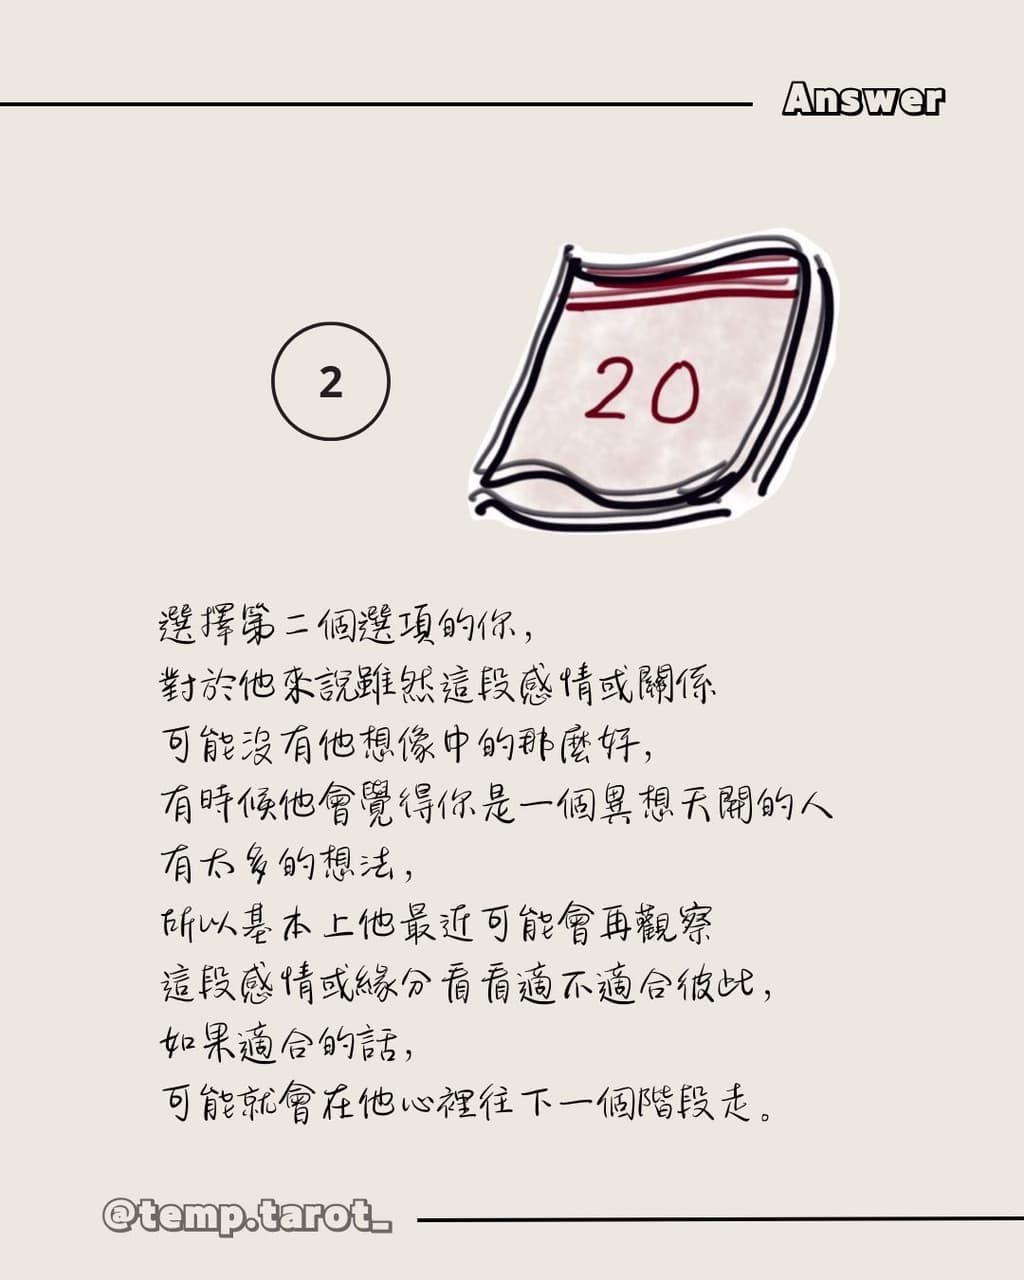 Answer
2
20
選擇第二個選項的你，
對於他來說雖然這段感情或關係
可能沒有他想像中的那麼好，
有時候他會覺得你是一個異想天開的人
有太多的想法，
所以基本上他最近可能會再觀察
這段感情或緣分看看適不適合彼此，
如果適合的話，
可能就會在他心裡往下一個階段走。
@temp.tarot_